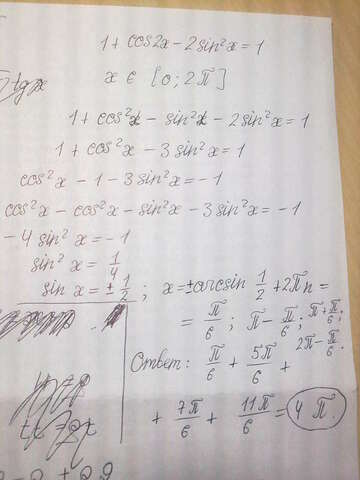 1 + cos2x - 2sin²x = 1
x ∈ [0; 2π]
tgx
1 + cos²x - sin²x - 2sin²x = 1
1 + cos²x - 3sin²x = 1
cos²x - 1 - 3sin²x = -1
cos²x - cos²x - sin²x - 3sin²x = -1
-4 sin²x = -1
sin²x = 1/4
sin x = ± 1/2 ; x = ±arcsin 1/2 + 2πn =
= π/6 ; π - π/6 ; π + π/6 ; 2π - π/6.
Ответ: π/6 + 5π/6 +
+ 7π/6 + 11π/6 = 4π.